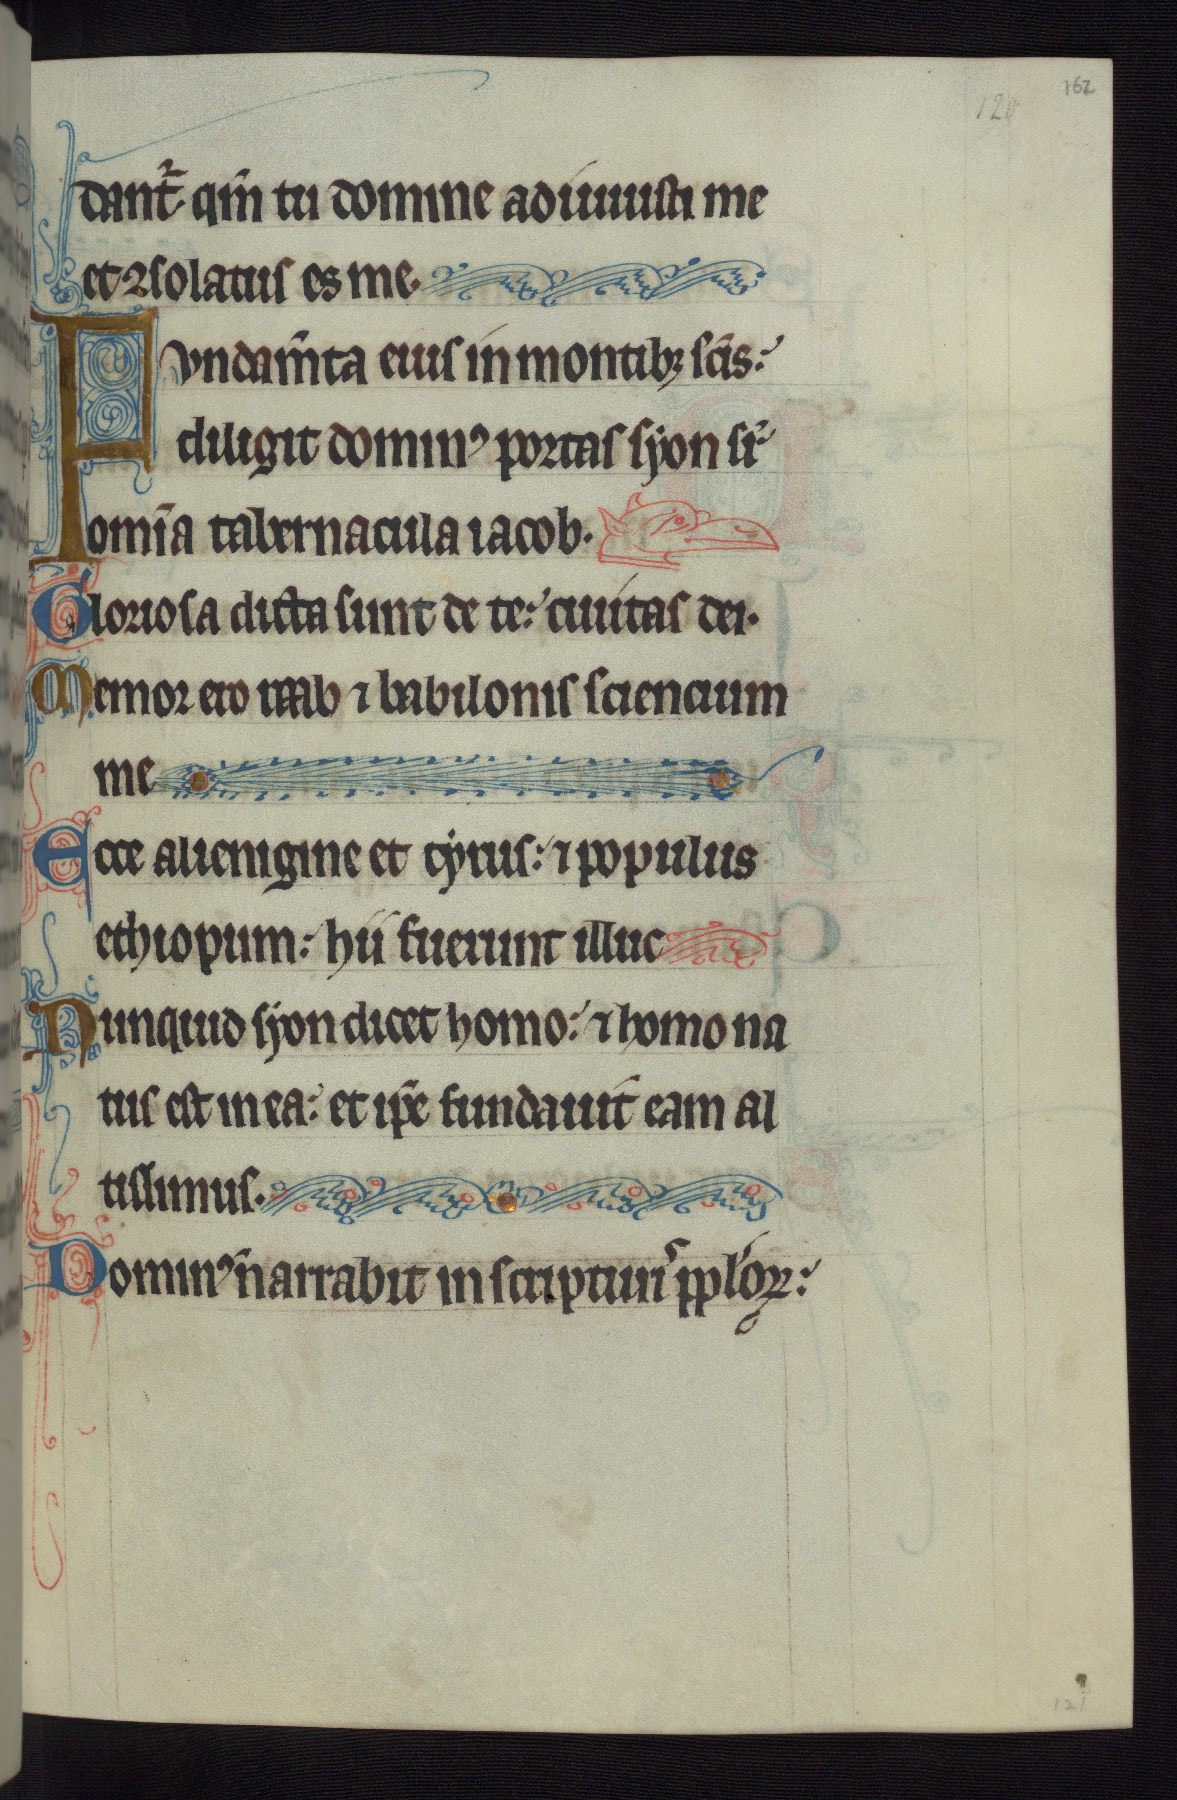 162
120
dant᷑. qm̄ tu domine adiuuisti me
et ꝯsolatus es me.
Fvndam̄ta eius in montibꝫ scīs:
diligit dominꝰ portas syon sr̄
omīa tabernacula iacob.
Gloriosa dicta sunt de te: ciuitas dei.
Memor ero raab ⁊ babilonis sciencium
me
Ecce alienigine et tyrus: ⁊ populus
ethiopum: hii fuerunt illuc
Nunquid syon dicet homo: ⁊ homo na
tus est in ea: et ip̄e fundauit̄ eam al
tissimus.
Dominꝰ narrabit in scripturis pp̄loꝝ:
121